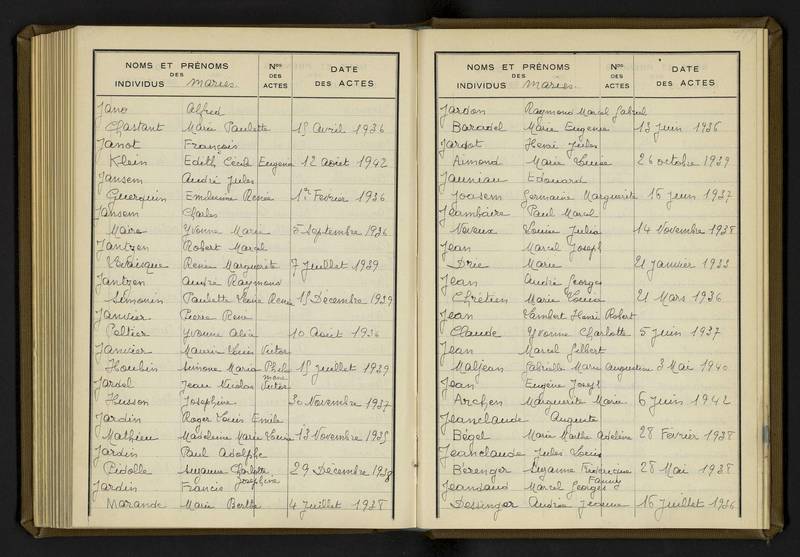 NOMS ET PRÉNOMS DES INDIVIDUS mariés. Nos DES ACTES DATE DES ACTES
Jano Alfred
Chastant Marie Paulette 15 Avril 1936
Janot François
Klein Edith Cécile Eugenie 12 août 1942
Jansem André Jules
Guerquin Emilienne Renée 1er Février 1936
Jansem Charles
Maire Yvonne Marie 5 Septembre 1936
Jantzen Robert Marcel
Renée Marguerite 7 Juillet 1939
Jantzen André Raymond
Simonin Paulette Renée 15 Décembre 1939
Janvier Pierre René
Peltier Yvonne 10 Août 1936
Janvier Louis Victor
Houbin Simone Maria Philo
mène 15 Juillet 1939
Jardel Jean Nicolas Victor
Husson Joséphine 30 Novembre 1937
Jardin Roger Louis Emile
Mathieu Madeleine Marie 13 Novembre 1935
Jardin Paul Adolphe
Bidolle Suzanne Charlotte 29 Décembre 1938
Joséphine
Jardin Francis
Marande Marie Berthe 4 Juillet 1938
NOMS ET PRÉNOMS DES INDIVIDUS mariés. Nos DES ACTES DATE DES ACTES
Jardon Raymond Marcel Gabriel
Baradel Marie Eugenie 13 Juin 1936
Jardot Henri Jules
Aimond Marie Louise 26 octobre 1939
Jauniau Edouard
Joasem Germaine Marguerite 16 Juin 1937
Jeambaire Paul Marcel
Neveux Louise Julia 14 Novembre 1938
Jean Marcel Joseph
Drie Marie 21 Janvier 1933
Jean André Georges
Chrétien Marie Louise 21 Mars 1936
Jean Lambert Henri Robert
Claude Yvonne Charlotte 5 Juin 1937
Jean Marcel Gilbert
Maljean Gabrielle Marie Augustine 3 Mai 1940
Jean Eugène Joseph
Archen Marguerite Marie 6 Juin 1942
Jeanclaude Auguste
Bégel Marie Marthe Adeline 28 Février 1938
Jeanclaude Jules Louis
Bérenger Suzanne Frédérique 28 Mai 1938
Fanny
Jeandaud Marcel Georges
Dessinger Andrée Jeanne 16 Juillet 1936